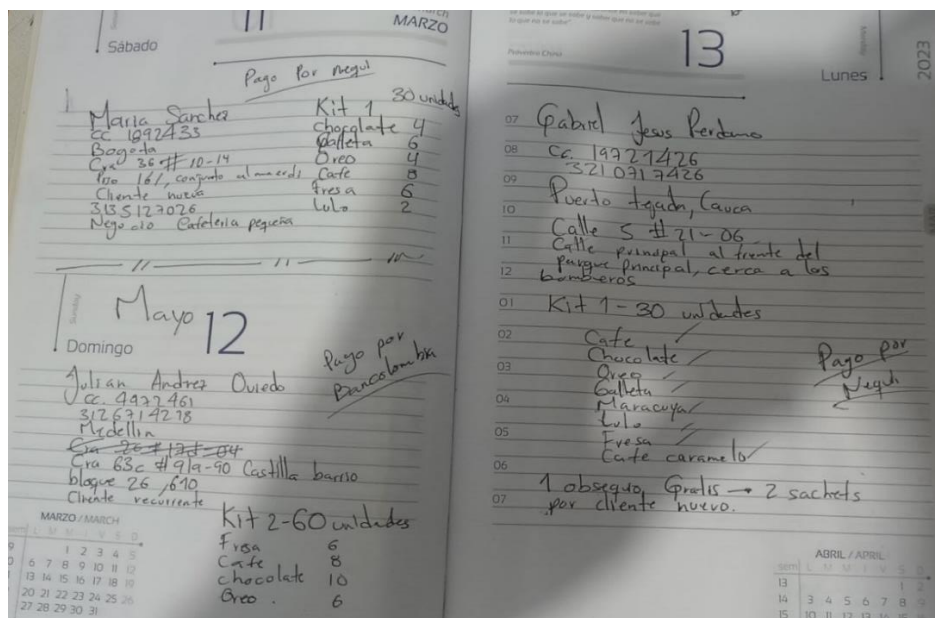 11
MARZO
Sábado
Pago Por nequi
Maria Sanchez
cc 1892433
Bogota
Cra 36 # 10-14
Piso 161, conjunto almaerds
Cliente nueva
3135127026
Negocio Cafeteria pequeña
Kit 1 30 unidades
chocolate 4
galleta 6
Oreo 4
Cafe 8
fresa 6
Lulo 2
Sunday
Mayo 12
Domingo
Pago por
Bancolombia
Julian Andrez Oviedo
cc. 4972461
3126714278
Medellin
Cra 63c #91a-90 Castilla barrio
bloque 26, 610
Cliente recurrente
Kit 2-60 unidades
Fresa 6
Cafe 8
chocolate 10
Oreo . 6
MARZO / MARCH
L M M J V S D
1 2 3 4 5
6 7 8 9 10 11 12
13 14 15 16 17 18 19
20 21 22 23 24 25 26
27 28 29 30 31
lo que no se sabe"
Proverbio Chino
13
Monday
Lunes
2023
07 Gabriel Jesus Perdomo
08 cc. 19721426
3210717426
09 Puerto tejada, Cauca
10 Calle 5 # 21-06
11 Calle principal al frente del
parque principal, cerca a los
12 bomberos
01 Kit 1-30 unidades
02 Cafe /
Chocolate /
03 Oreo /
Galleta /
04 Maracuya /
Lulo /
05 Fresa /
Cafe caramelo /
Pago por
Nequi
06 1 obsequio Gratis → 2 sachets
07 por cliente nuevo.
ABRIL / APRIL
sem L M M J V S D
13 1 2
14 3 4 5 6 7 8 9
15 10 11 12 13 14 15 16